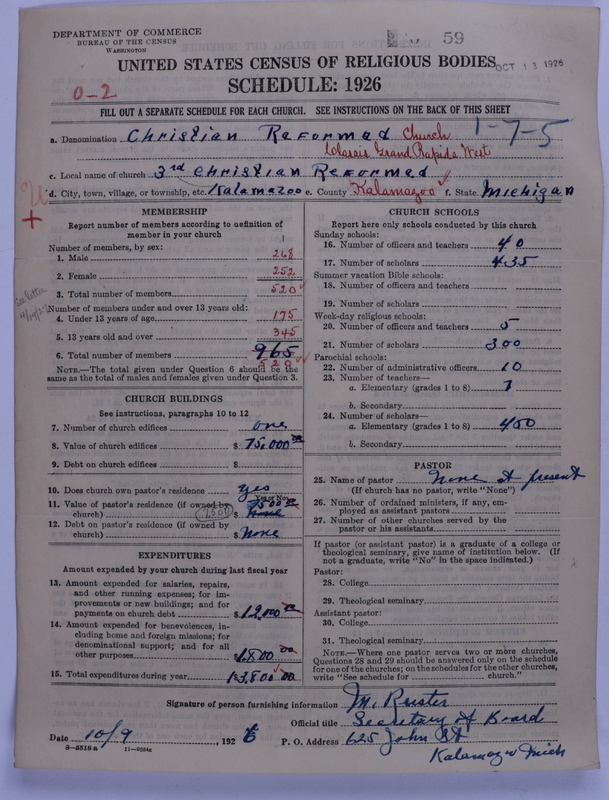 DEPARTMENT OF COMMERCE
BUREAU OF THE CENSUS
WASHINGTON
59
UNITED STATES CENSUS OF RELIGIOUS BODIES
OCT 13 1926
SCHEDULE: 1926
0-2
FILL OUT A SEPARATE SCHEDULE FOR EACH CHURCH. SEE INSTRUCTIONS ON THE BACK OF THIS SHEET
1-7-5
a. Denomination Christian Reformed Church
Classis Grand Rapids West
c. Local name of church 3rd Christian Reformed
d. City, town, village, or township, etc. Kalamazoo e. County Kalamazoo f. State Michigan
MEMBERSHIP
Report number of members according to definition of
member in your church
Number of members, by sex:
1. Male 268
2. Female 252
3. Total number of members 520
Number of members under and over 13 years old:
4. Under 13 years of age 175
5. 13 years old and over 345
6. Total number of members 965
520
NOTE.—The total given under Question 6 should be the
same as the total of males and females given under Question 3.
CHURCH BUILDINGS
See instructions, paragraphs 10 to 12
7. Number of church edifices one
8. Value of church edifices $ 75,000 00
9. Debt on church edifices $
10. Does church own pastor's residence yes
Yes or No
11. Value of pastor's residence (if owned by
church) 7500 $ 7500 00 None
12. Debt on pastor's residence (if owned by
church) $ None
EXPENDITURES
Amount expended by your church during last fiscal year
13. Amount expended for salaries, repairs,
and other running expenses; for im-
provements or new buildings; and for
payments on church debt $ 12,000 00
14. Amount expended for benevolences, in-
cluding home and foreign missions; for
denominational support; and for all
other purposes 1800 00
15. Total expenditures during year 13,800 00
CHURCH SCHOOLS
Report here only schools conducted by this church
Sunday schools:
16. Number of officers and teachers 40
17. Number of scholars 435
Summer vacation Bible schools:
18. Number of officers and teachers
19. Number of scholars
Week-day religious schools:
20. Number of officers and teachers 5
21. Number of scholars 300
Parochial schools:
22. Number of administrative officers 10
23. Number of teachers—
a. Elementary (grades 1 to 8) 7
b. Secondary
24. Number of scholars—
a. Elementary (grades 1 to 8) 400
b. Secondary
PASTOR
25. Name of pastor None at present
(If church has no pastor, write "None")
26. Number of ordained ministers, if any, em-
ployed as assistant pastors
27. Number of other churches served by the
pastor or his assistants
If pastor (or assistant pastor) is a graduate of a college or
theological seminary, give name of institution below. (If
not a graduate, write "No" in the space indicated.)
Pastor:
28. College
29. Theological seminary
Assistant pastor:
30. College
31. Theological seminary
NOTE.—Where one pastor serves two or more churches,
Questions 28 and 29 should be answered only on the schedule
for one of the churches; on the schedules for the other churches,
write "See schedule for church."
Signature of person furnishing information M. Ruster
Official title Secretary of Board
Date 10/9, 1926 P. O. Address 625 John St
8-5318a 11-9034z
Kalamazoo Mich